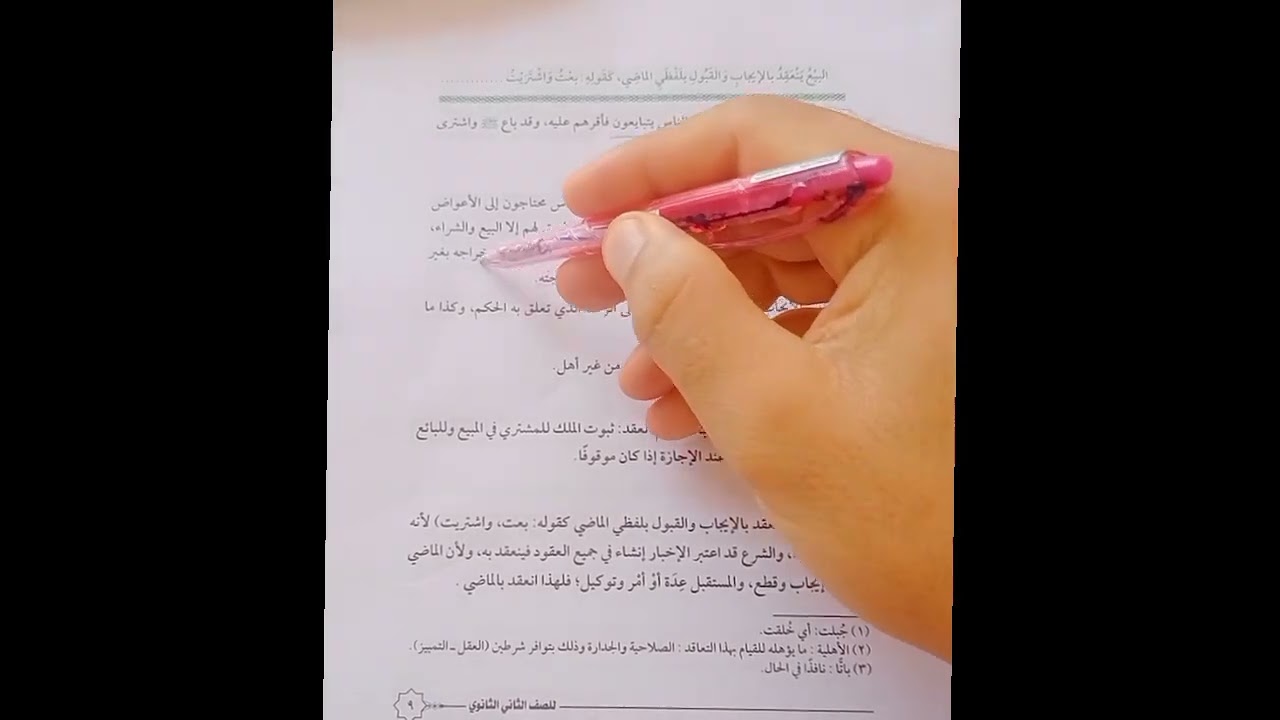 البَيْعُ يَنْعَقِدُ بالإيجابِ وَالقَبُولِ بلَفْظَيِ الماضِي، كَقَولِهِ: بعْتُ وَاشْتَرَيْتُ ............
الناس يتبايعون فأقرهم عليه، وقد باع ﷺ واشترى
محتاجون إلى الأعواض
لهم إلا البيع والشراء،
بغير
الذي تعلق به الحكم، وكذا ما
من غير أهل.
ثبوت الملك للمشتري في المبيع وللبائع
عند الإجازة إذا كان موقوفًا.
بالإيجاب والقبول بلفظي الماضي كقوله: بعت، واشتريت) لأنه
، والشرع قد اعتبر الإخبار إنشاء في جميع العقود فينعقد به، ولأن الماضي
إيجاب وقطع، والمستقبل عِدَة أوْ أمْر وتوكيل؛ فلهذا انعقد بالماضي .
(١) جُبلت: أي خُلقت.
(٢) الأهلية : ما يؤهله للقيام بهذا التعاقد : الصلاحية والجدارة وذلك بتوافر شرطين (العقل ـ التمييز).
(٣) باتًّا : نافذًا في الحال.
للصف الثاني الثانوي ٩